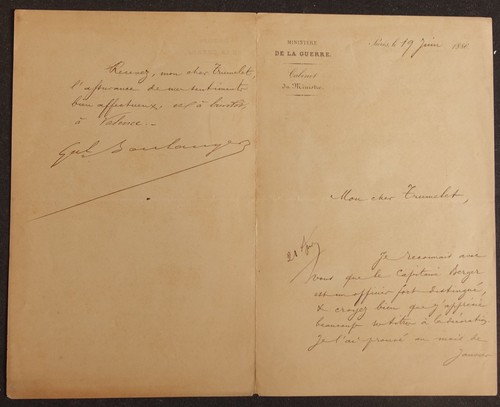 MINISTÈRE
DE LA GUERRE.
Cabinet
du Ministre.
Paris, le 19 Juin 1886
Mon cher Trumelet,
Je reconnais avec
vous que le Capitaine Berger
est un officier fort distingué,
& croyez bien que j'apprécie
beaucoup à la décoration
Je l'ai au mois de
Janvier
Recevez, mon cher Trumelet,
l'assurance de mes sentiments
bien affectueux. et à bientôt,
à Valence.
Gal Boulanger